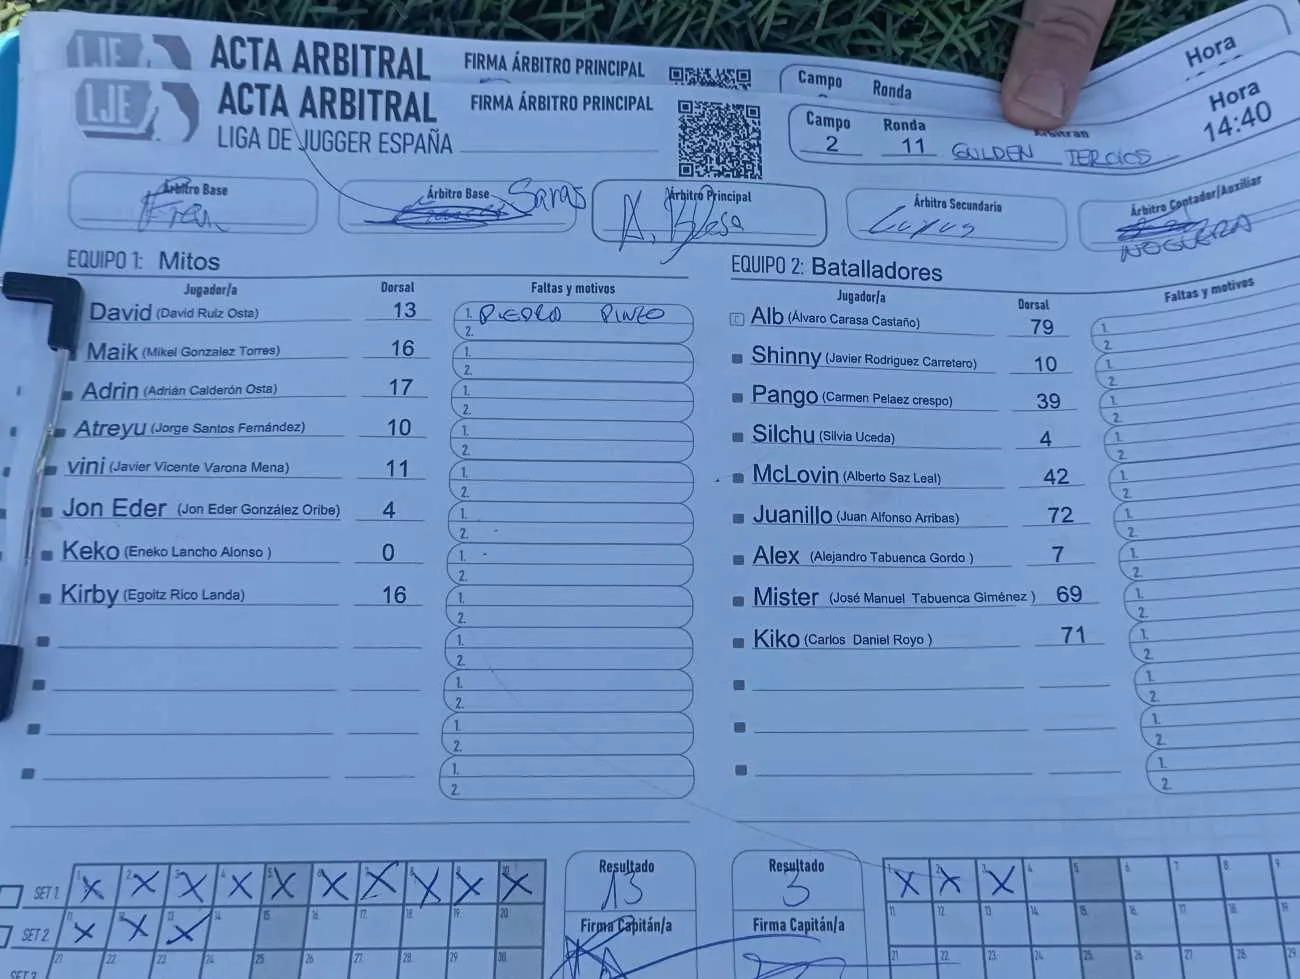 LJE ACTA ARBITRAL FIRMA ÁRBITRO PRINCIPAL Campo Ronda Hora
LJE ACTA ARBITRAL FIRMA ÁRBITRO PRINCIPAL
LIGA DE JUGGER ESPAÑA
Campo Ronda Arbitran Hora
2 11 GULDEN TERCIOS 14:40
Árbitro Base Fran
Árbitro Base Saras
Árbitro Principal A. Blesa
Árbitro Secundario
Árbitro Contador/Auxiliar NOGUERA
EQUIPO 1: Mitos
Jugador/a Dorsal Faltas y motivos
David (David Ruiz Osta) 13 1. PIEDRA PINZO
2.
Maik (Mikel Gonzalez Torres) 16 1.
2.
Adrin (Adrián Calderón Osta) 17 1.
2.
Atreyu (Jorge Santos Fernández) 10 1.
2.
vini (Javier Vicente Varona Mena) 11 1.
2.
Jon Eder (Jon Eder González Oribe) 4 1.
2.
Keko (Eneko Lancho Alonso ) 0 1.
2.
Kirby (Egoitz Rico Landa) 16 1.
2.
1.
2.
1.
2.
1.
2.
1.
2.
EQUIPO 2: Batalladores
Jugador/a Dorsal Faltas y motivos
C Alb (Álvaro Carasa Castaño) 79 1.
2.
Shinny (Javier Rodriguez Carretero) 10 1.
2.
Pango (Carmen Pelaez crespo) 39 1.
2.
Silchu (Silvia Uceda) 4 1.
2.
McLovin (Alberto Saz Leal) 42 1.
2.
Juanillo (Juan Alfonso Arribas) 72 1.
2.
Alex (Alejandro Tabuenca Gordo ) 7 1.
2.
Mister (José Manuel Tabuenca Giménez ) 69 1.
2.
Kiko (Carlos Daniel Royo ) 71 1.
2.
1.
2.
1.
2.
1.
2.
SET 1. 1. X 2. X 3. X 4. X 5. X 6. X 7. X 8. X 9. X 10. X
SET 2. 11. X 12. X 13. X 14. 15. 16. 17. 18. 19. 20.
SET 3. 21. 22. 23. 24. 25. 26. 27. 28. 29. 30.
Resultado
13
Firma Capitán/a
Resultado
3
Firma Capitán/a
1. X 2. X 3. X 4. 5. 6. 7. 8. 9.
11. 12. 13. 14. 15. 16. 17. 18. 19.
21. 22. 23. 24. 25. 26. 27. 28. 29.